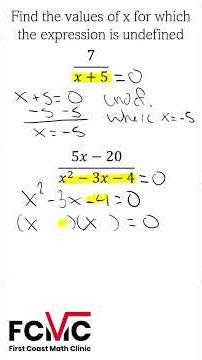 Find the values of x for which
the expression is undefined
7
x + 5 = 0
x + 5 = 0
undf.
-5 -5
where x = -5
x = -5
5x − 20
x² − 3x − 4 = 0
x² - 3x - 4 = 0
(x )(x ) = 0
FCMC
First Coast Math Clinic